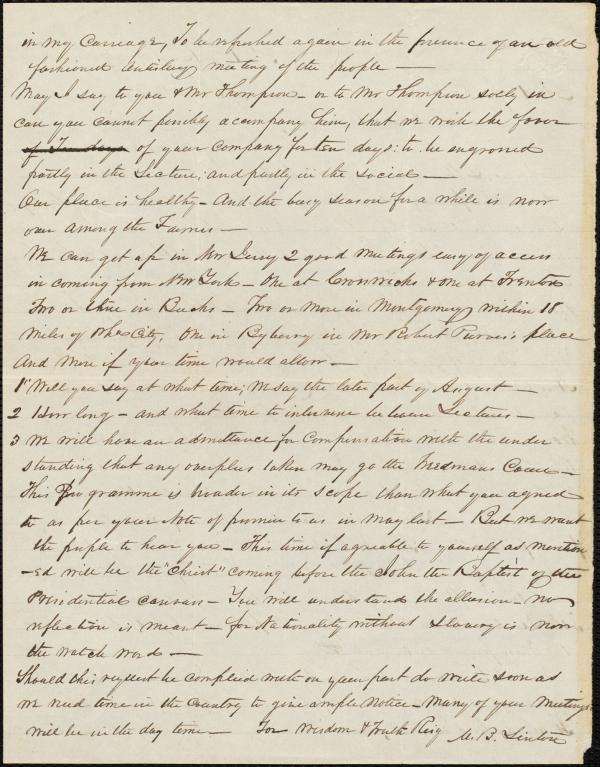 in my Carriage, To be refreshed again in the presence of an old
fashioned antislavery meeting of the people —
May I say to you & Mr Thompson – or to Mr Thompson solely in
case you cannot possibly accompany him, that we wish the favor
of Ten days of your company for ten days: to be engrossed
partly in the Lecture; and partly in the social —
Our place is healthy – And the busy season for a while is now
over among the Farmers —
We can get up in New Jersey 2 good meetings easy of access
in coming from New York – One at Crosswicks & one at Trenton
Two or three in Bucks – Two or more in Montgomery within 18
miles of Pha City, One in Byberry in Mr Robert Purvis's place
And more if your time would allow —
1st Will you say at what time; We say the later part of August —
2 How long – and what time to intervene between Lectures –
3 We will have an admittance for Compensation with the under
standing that any overplus taken may go the Freedmans Cause –
This Programme is broader in its scope than what you agreed
to as per your Note of promise to us in May last – But we want
the people to hear you – This time if agreeable to yourself as mention
–ed will be the "Christ" coming before the John the Baptist of the
Presidential canvass – You will understand the allusion – no
reflection is meant – for Nationality without slavery is now
the watch word —
Should this request be complied with on your part do write soon as
we need time in the Country to give ample Notice – Many of your meetings
will be in the day time — For Wisdom & Truth M. B. Linton